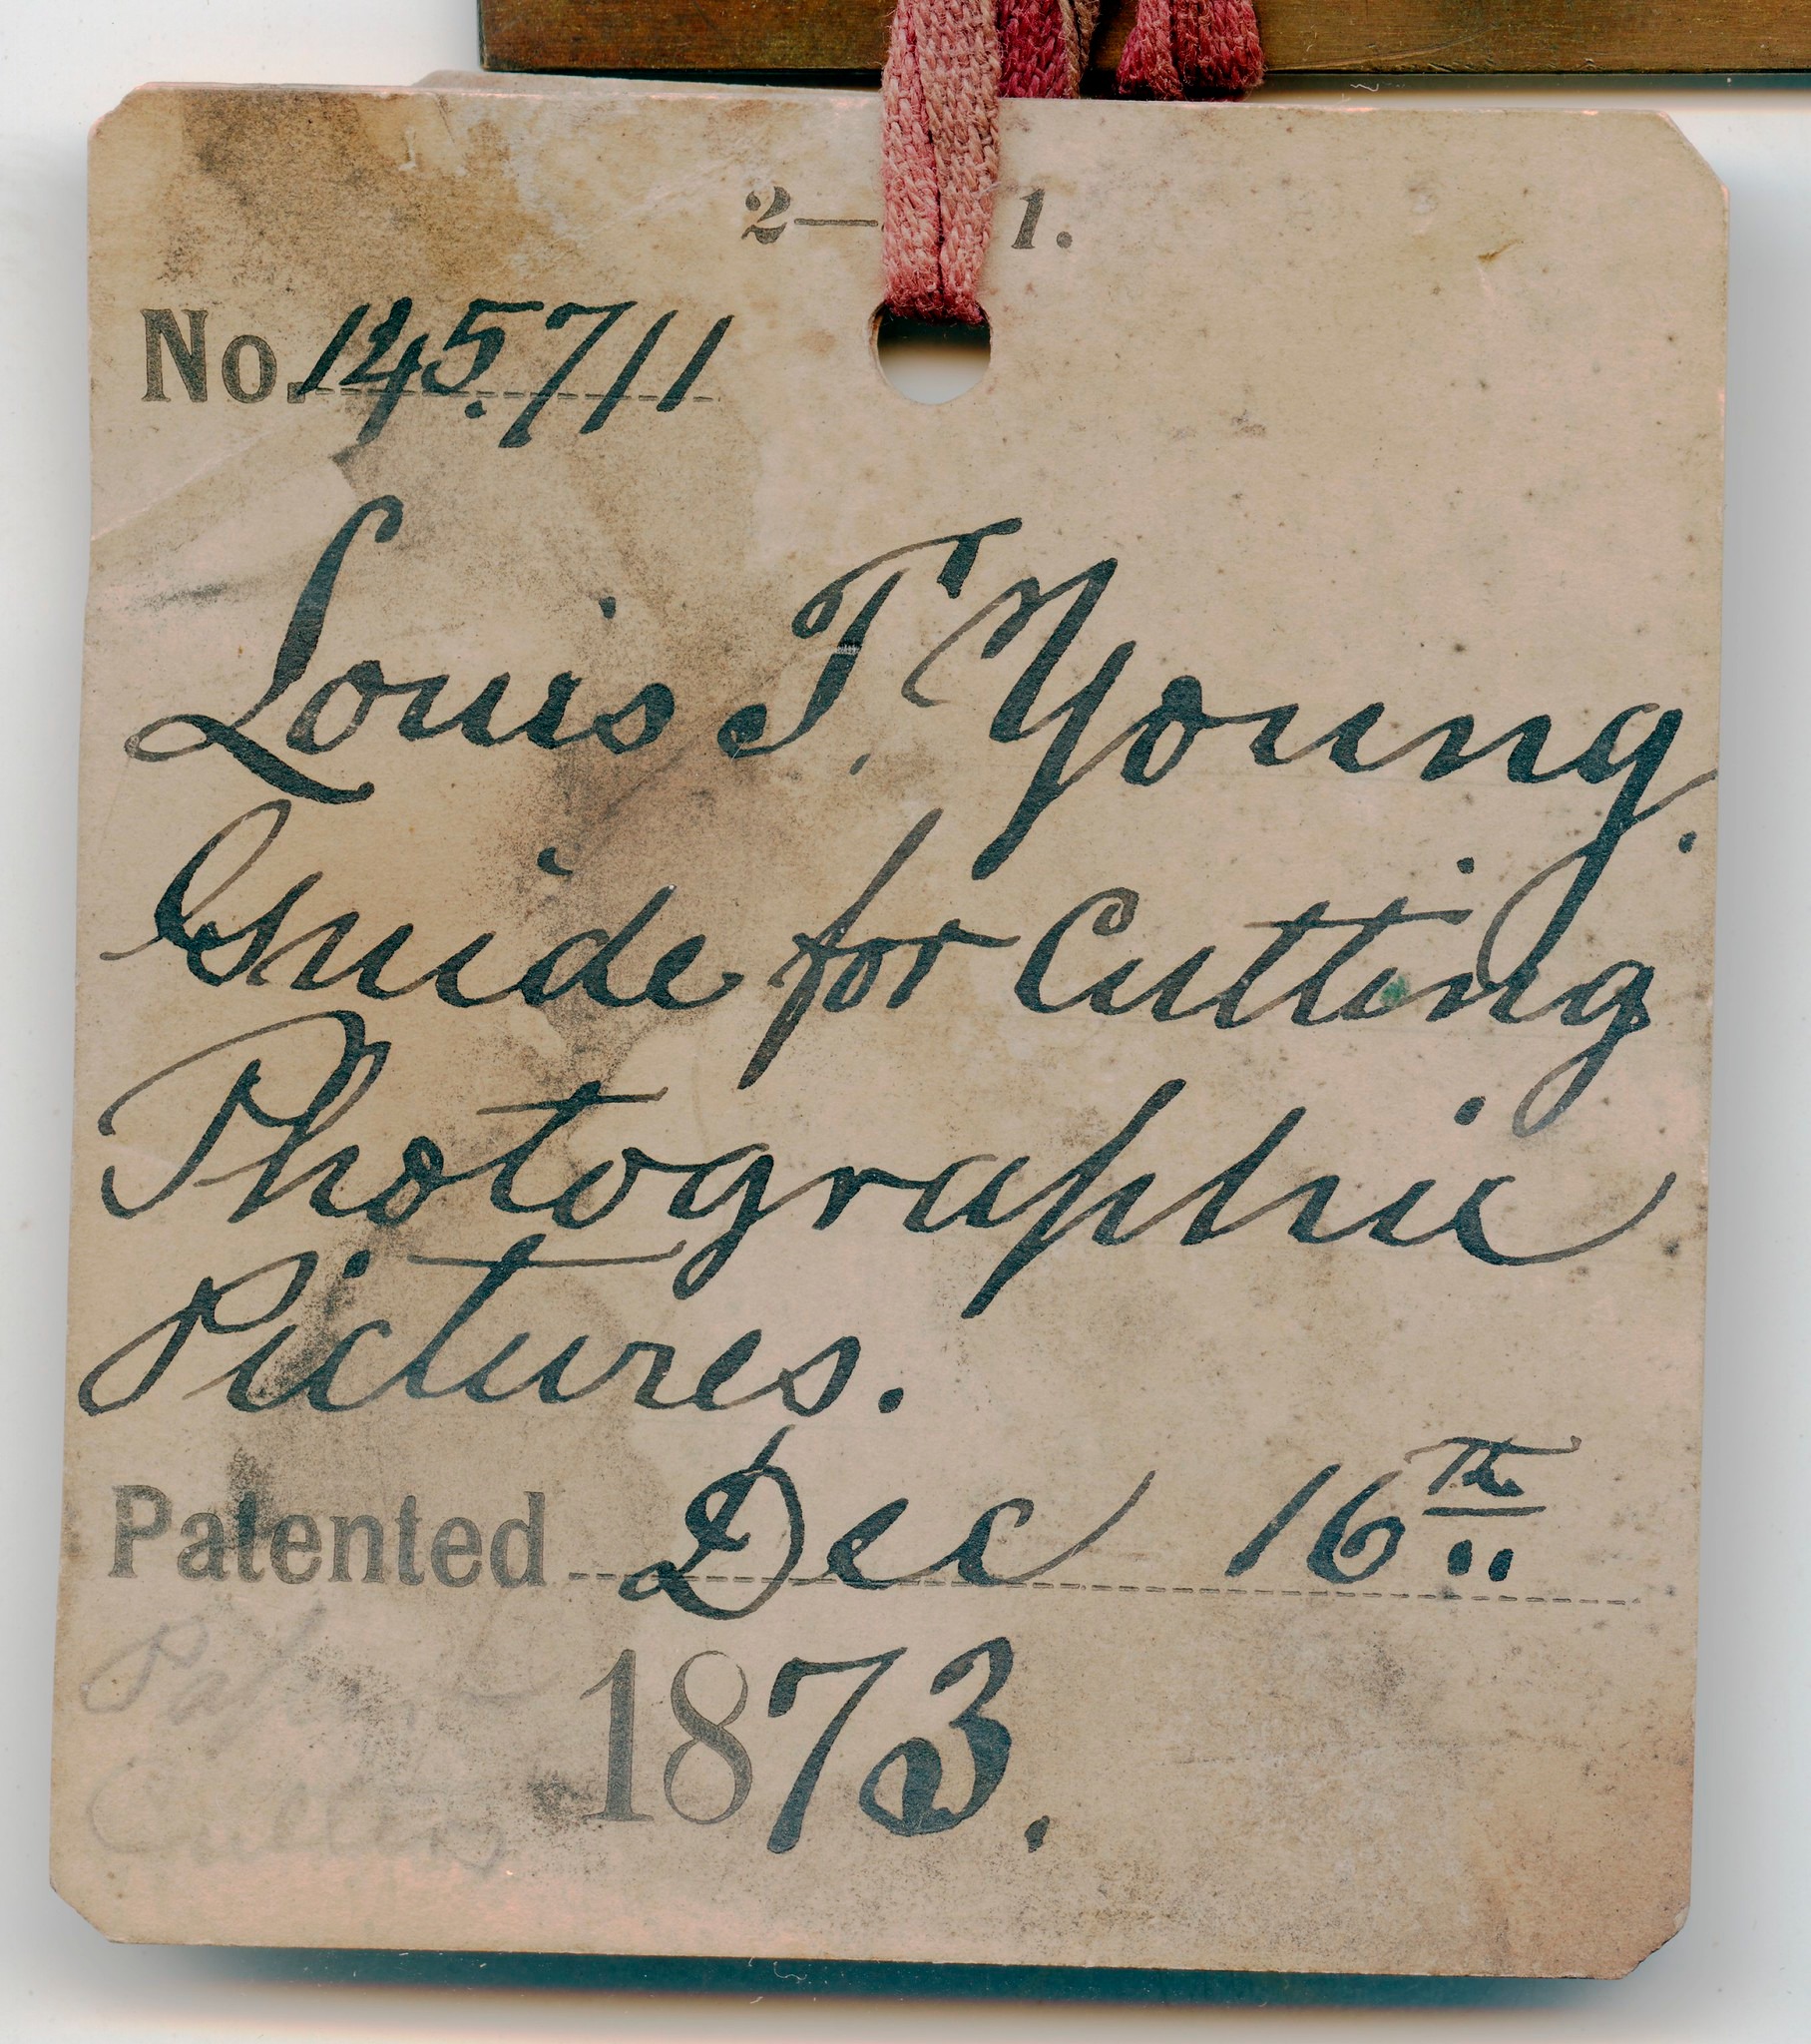 2— 1.
No. 145.711
Louis T. Young.
Guide for Cutting
Photographic
Pictures.
Patented Dec 16th
1873.
Paper
Cutters